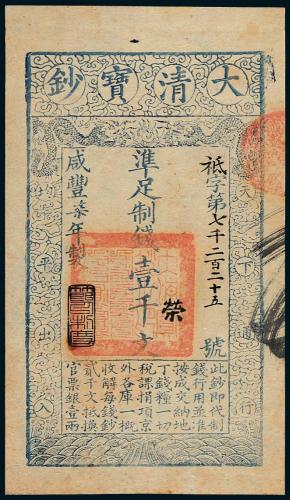 大清寶鈔
天下通行
祗字第七千二百二十五號
榮
準足制錢壹千文
咸豐柒年製
均平出入
此鈔即代制
錢行用並准
按成交納地
丁錢糧一切
稅課捐項京
外各庫一概
收解每錢鈔
貳千文抵換
官票銀壹兩